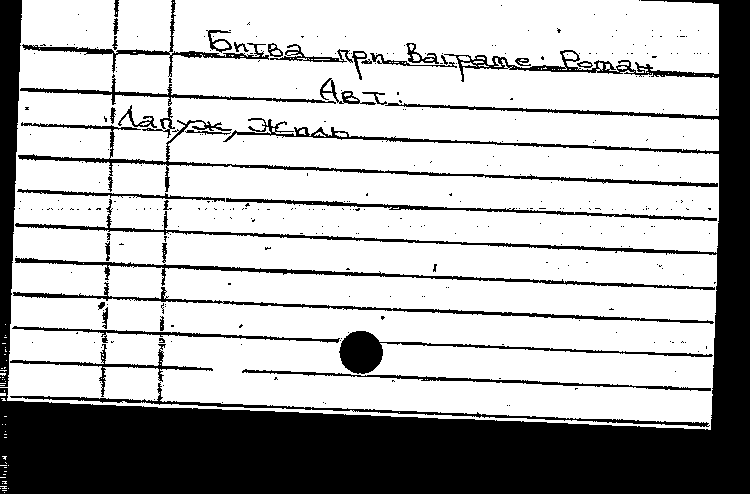 Битва при Ваграме: Роман
Авт:
Лапуж, Жиль